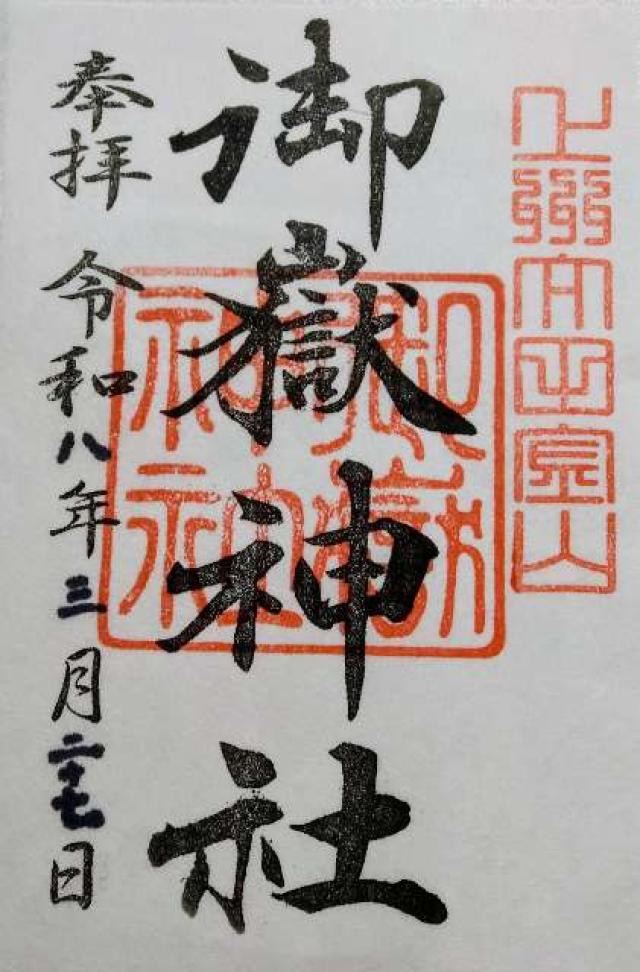 上州
御嶽神社
御嶽
神社
奉拝 令和八年三月二十七日